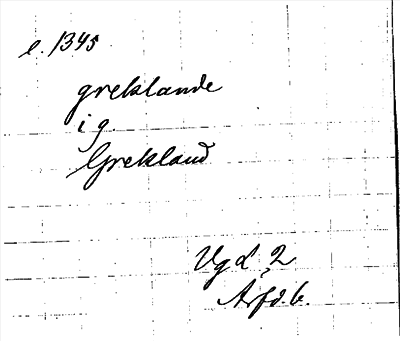 e. 1345
greklande
i g.
Grekland
Vg L, 2
Ärfd. b.